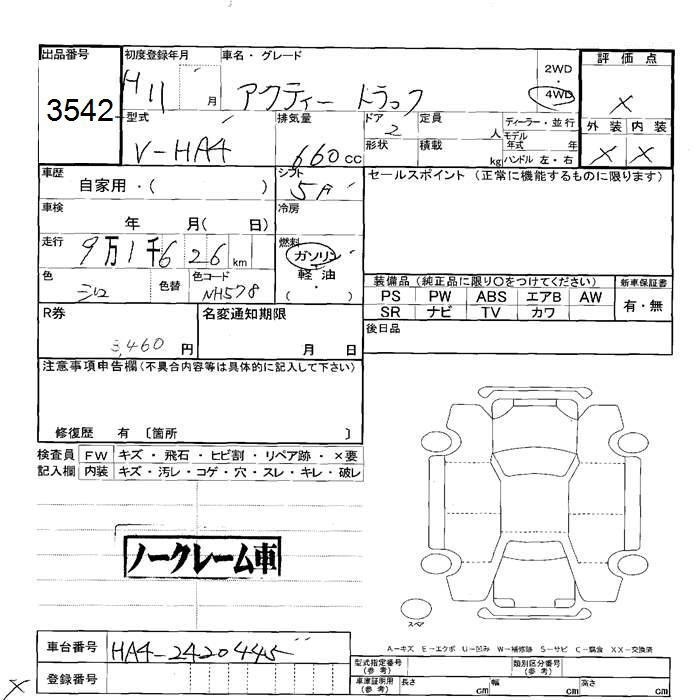 出品番号 3542
初度登録年月 H11 月
車名・グレード アクティー トラック
2WD
4WD
評価点 X
外装 内装
X X
型式 V-HA4
排気量 660 cc
ドア 2
定員 人
ディーラー・並行
モデル年式 年
形状
積載 kg
ハンドル 左・右
車歴 自家用・( )
シフト 5F
セールスポイント (正常に機能するものに限ります)
車検 年 月( 日)
冷房
走行 9万1千626 km
燃料 ガソリン
軽油
( )
色
色替
色コード NH578
装備品 (純正品に限り○をつけてください)
新車保証書
PS PW ABS エアB AW
有・無
SR ナビ TV カワ
後日品
R券 3,460 円
名変通知期限 月 日
注意事項申告欄 (不具合内容等は具体的に記入して下さい)
修復歴 有 〔箇所 〕
検査員 FW キズ・飛石・ヒビ割・リペア跡・×要
記入欄 内装 キズ・汚レ・コゲ・穴・スレ・キレ・破レ
ノークレーム車
スペア
A−キズ E−エクボ U−凹み W−補修跡 S−サビ C−腐食 XX−交換済
車台番号 HA4-2420445
登録番号
X
型式指定番号 (参考)
類別区分番号 (参考)
車庫証明用 (参考) 長さ cm 幅 cm 高さ cm